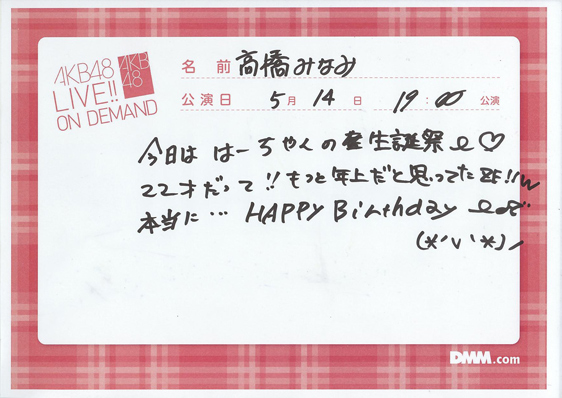 AKB48
LIVE!!
ON DEMAND
AKB
48
名 前 高橋みなみ
公演日 5月 14日 19:00 公演
今日は はーちゃんの生誕祭
22才だって!!もっと年上だと思ってた
本当に… HAPPY Birthday
(*'∨'*)ノ
DMM.com